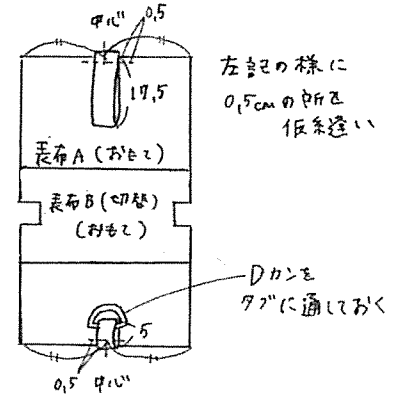 中心
0,5
17,5
左記の様に
0,5cmの所を
仮糸縫い
表布A(おもて)
表布B(切替)
(おもて)
Dカンを
タブに通しておく
5
0,5
中心